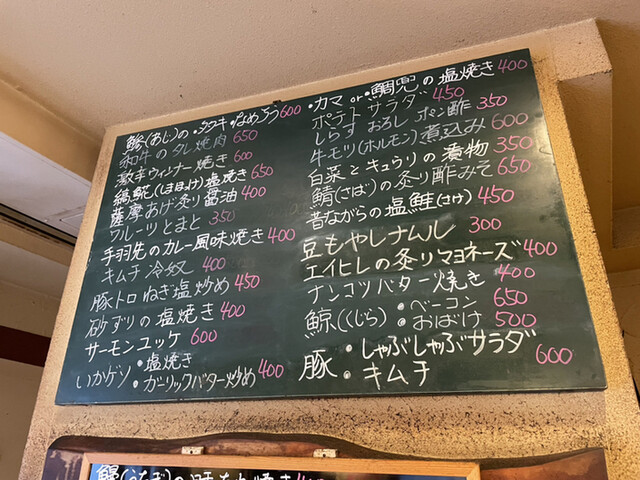 鯵(あじ)の・タタキ・なめろう600
和牛のタレ焼肉 650
激辛ウィンナー焼き 600
縞鯱(しまほけ)塩焼き 650
薩摩あげ炙り醤油 400
フルーツとまと 350
手羽先のカレー風味焼き 400
キムチ冷奴 400
豚トロねぎ塩炒め 450
砂ずりの塩焼き 400
サーモンユッケ 600
いかゲソ・塩焼き
・ガーリックバター炒め 400
・カマor・鯛兜の塩焼き 400
ポテトサラダ 450
しらすおろしポン酢 350
牛モツ(ホルモン)煮込み 600
白菜とキュウリの漬物 350
鯖(さば)の炙り酢みそ 650
昔ながらの塩鮭(さけ) 450
豆もやしナムル 300
エイヒレの炙りマヨネーズ 400
ナンコツバター焼き 400
鯨(くじら)・ベーコン 650
・おばけ 500
豚・しゃぶしゃぶサラダ 600
・キムチ
鰻(うなぎ)の